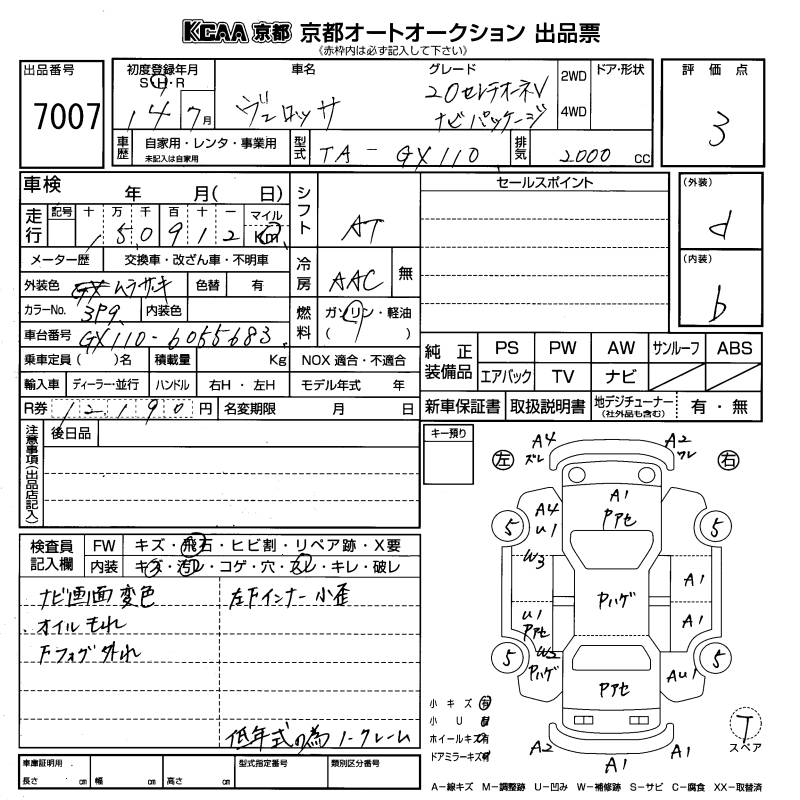 KCAA 京都 京都オートオークション 出品票
《赤枠内は必ず記入して下さい》
出品番号
7007
初度登録年月
S・H・R
14 7月
車名
ヴェロッサ
グレード
20セレテオーネV
ナビパッケージ
2WD
4WD
ドア・形状
評価点
3
車歴
自家用・レンタ・事業用
未記入は自家用
型式
TA-GX110
排気
2000 cc
車検 年 月( 日)
走行
記号 十 万 千 百 十 一 マイル
150912 Km
メーター歴 交換車・改ざん車・不明車
外装色 ムラサキ 色替 有
カラーNo. 3P9 内装色
車台番号 GX110-6055683
乗車定員 ( )名 積載量 Kg
輸入車 ディーラー・並行 ハンドル 右H・左H
R券 12,190円 名変期限 月 日
シフト AT
冷房 AAC 無
燃料 ガソリン・軽油
( )
NOX 適合・不適合
モデル年式 年
セールスポイント
(外装)
d
(内装)
b
純正装備品
PS PW AW サンルーフ ABS
エアバック TV ナビ
新車保証書 取扱説明書 地デジチューナー(社外品も含む) 有・無
注意事項(出品店記入)
後日品
キー預り
検査員記入欄
FW キズ・飛石・ヒビ割・リペア跡・X要
内装 キズ・汚レ・コゲ・穴・スレ・キレ・破レ
ナビ画面変色
左下インナー小歪
オイルもれ
下フォグ外れ
低年式の為ノークレーム
左
右
A4
ズレ
A2
ワレ
A1
Pアセ
A4
U1
5
5
W3
Pハゲ
A1
U1
Pアセ
A1
5
W2
Pハゲ
5
Pアセ
AU1
A2
A1
A1
小キズ 有
小U
ホイールキズ 有
ドアミラーキズ
T
スペア
車庫証明用
長さ cm 幅 cm 高さ cm
型式指定番号
類別区分番号
A-線キズ M-調整跡 U-凹み W-補修跡 S-サビ C-腐食 XX-取替済